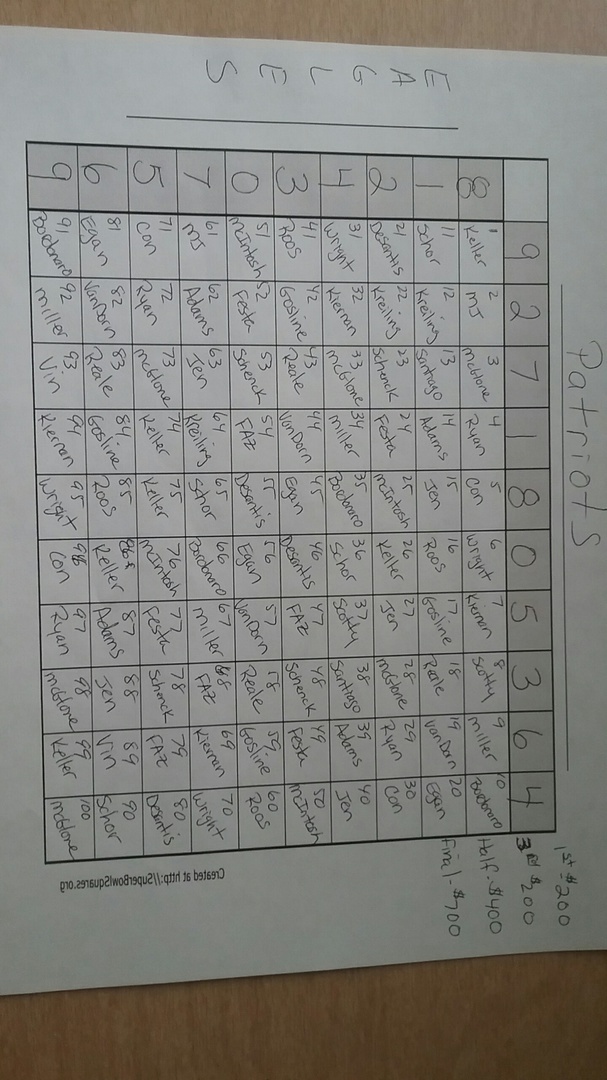 Patriots
EAGLES
1st-$200
3rd $200
Half-$400
Final-$700
9 2 7 1 8 0 5 3 6 4
8 1 Keller 2 MJ 3 McGlone 4 Ryan 5 Con 6 Wright 7 Kiernan 8 Scotty 9 Miller 10 Bordonaro
1 11 Schor 12 Kreiling 13 Santiago 14 Adams 15 Jen 16 Roos 17 Gosline 18 Reale 19 VanDorn 20 Egan
2 21 Desantis 22 Kreiling 23 Schenck 24 Festa 25 McIntosh 26 Keller 27 Jen 28 McGlone 29 Ryan 30 Con
4 31 Wright 32 Kiernan 33 McGlone 34 Miller 35 Bordonaro 36 Schor 37 Scotty 38 Santiago 39 Adams 40 Jen
3 41 Roos 42 Gosline 43 Reale 44 VanDorn 45 Egan 46 Desantis 47 FAZ 48 Schenck 49 Festa 50 McIntosh
0 51 McIntosh 52 Festa 53 Schenck 54 FAZ 55 Desantis 56 Egan 57 VanDorn 58 Reale 59 Gosline 60 Roos
7 61 MJ 62 Adams 63 Jen 64 Kreiling 65 Schor 66 Bordonaro 67 Miller 68 FAZ 69 Kiernan 70 Wright
5 71 Con 72 Ryan 73 McGlone 74 Keller 75 Keller 76 McIntosh 77 Festa 78 Schenck 79 FAZ 80 Desantis
6 81 Egan 82 VanDorn 83 Reale 84 Gosline 85 Roos 86 Keller 87 Adams 88 Jen 89 Vin 90 Schor
9 91 Bordonaro 92 Miller 93 Vin 94 Kiernan 95 Wright 96 Con 97 Ryan 98 McGlone 99 Keller 100 McGlone
Created at http://SuperBowlSquares.org